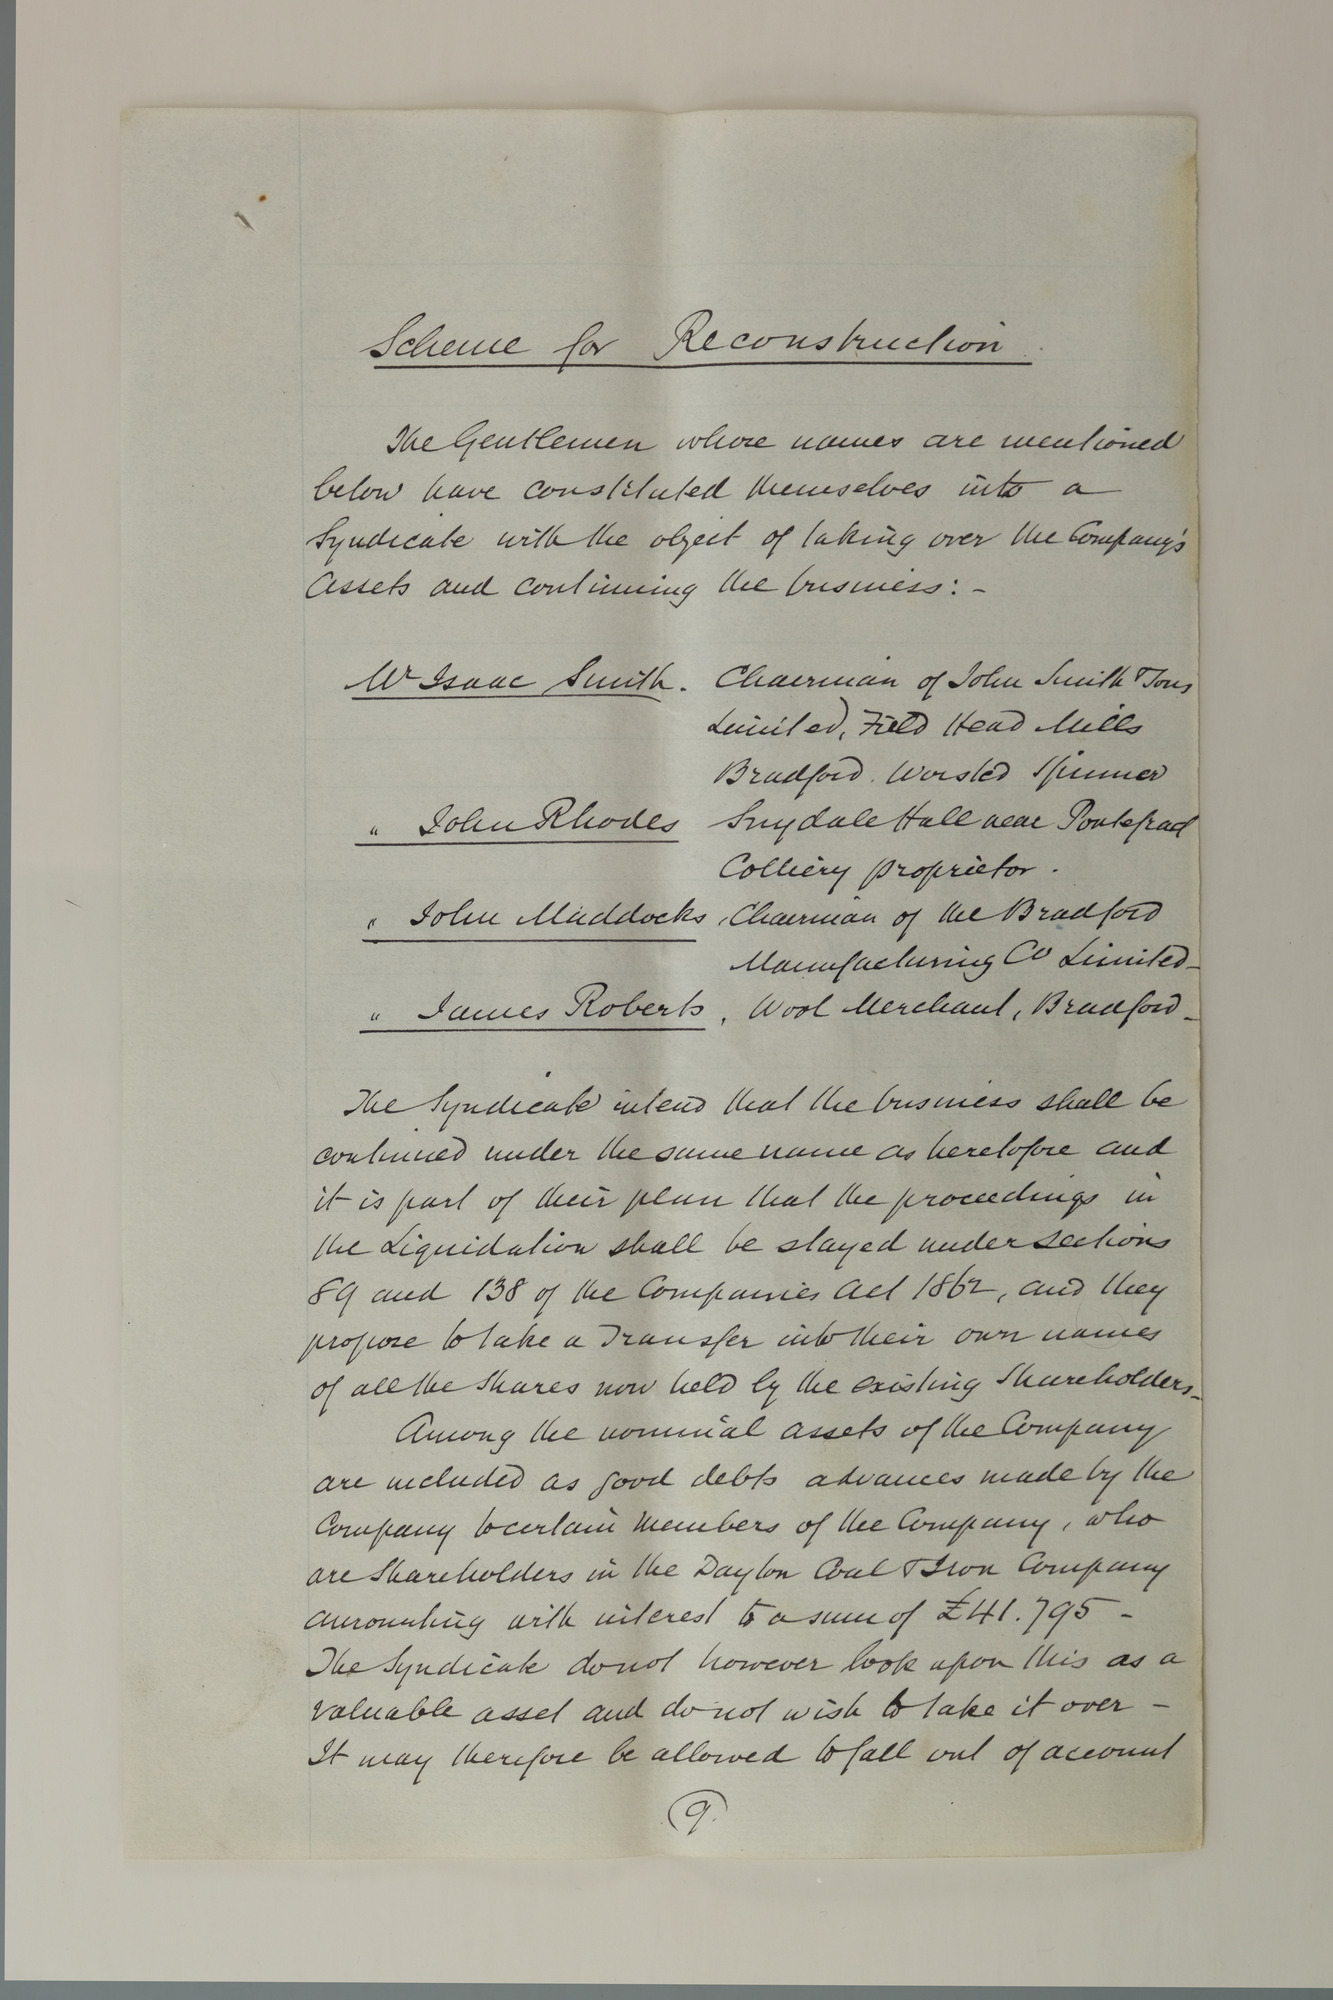 Scheme for Reconstruction
The Gentlemen whose names are mentioned
below have constituted themselves into a
Syndicate with the object of taking over the Company's
Assets and continuing the business: -
Mr Isaac Smith. Chairman of John Smith & Sons
Limited, Field Head Mills
Bradford. Worsted Spinner
" John Rhodes Snydale Hall near Pontefract
Colliery proprietor.
" John Maddocks, Chairman of the Bradford
Manufacturing Co Limited -
" James Roberts, Wool Merchant, Bradford -
The Syndicate intend that the business shall be
continued under the same name as heretofore and
it is part of their plan that the proceedings in
the Liquidation shall be stayed under sections
89 and 138 of the Companies Act 1862, and they
propose to take a Transfer into their own names
of all the Shares now held by the existing Shareholders -
Among the nominal assets of the Company
are included as good debts advances made by the
Company to certain Members of the Company, who
are Shareholders in the Dayton Coal & Iron Company
amounting with interest to a sum of £41.795 -
The Syndicate do not however look upon this as a
valuable asset and do not wish to take it over -
It may therefore be allowed to fall out of account
9.